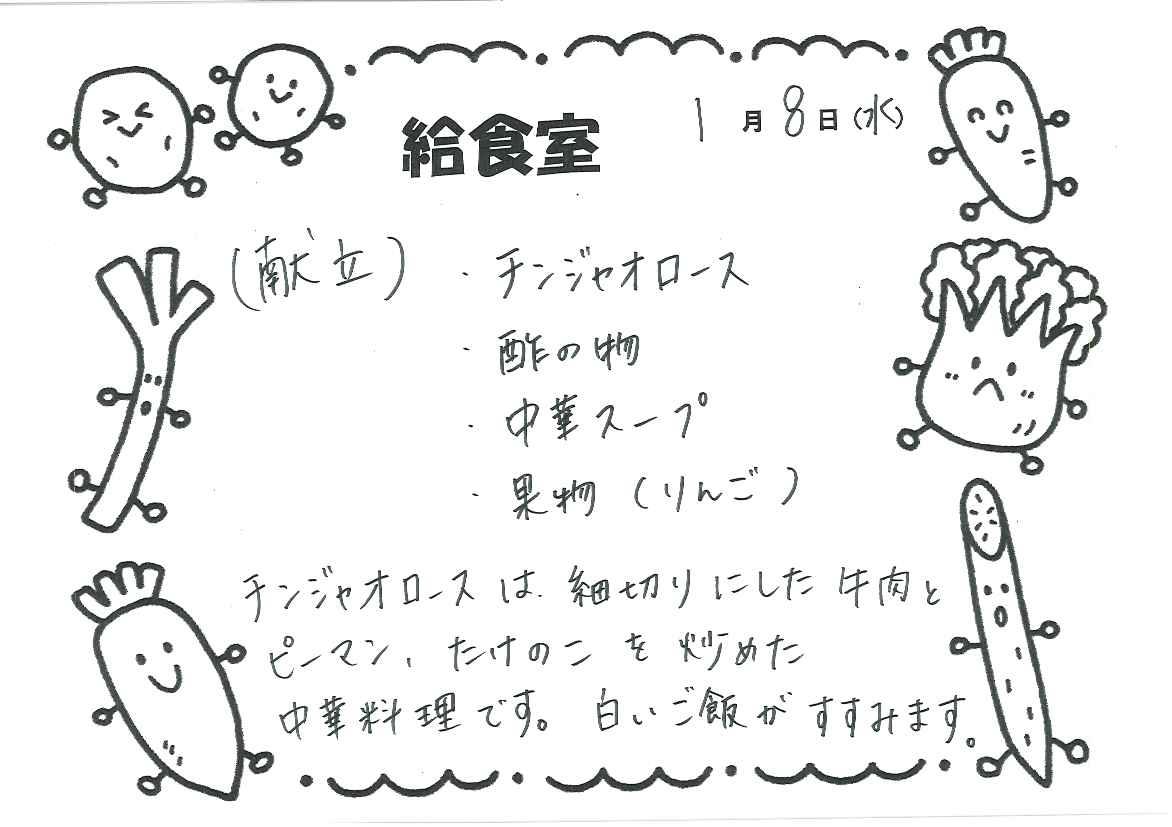 給食室
1月8日(水)
(献立)・チンジャオロース
・酢の物
・中華スープ
・果物(りんご)
チンジャオロースは細切りにした牛肉と
ピーマン、たけのこを炒めた
中華料理です。白いご飯がすすみます。